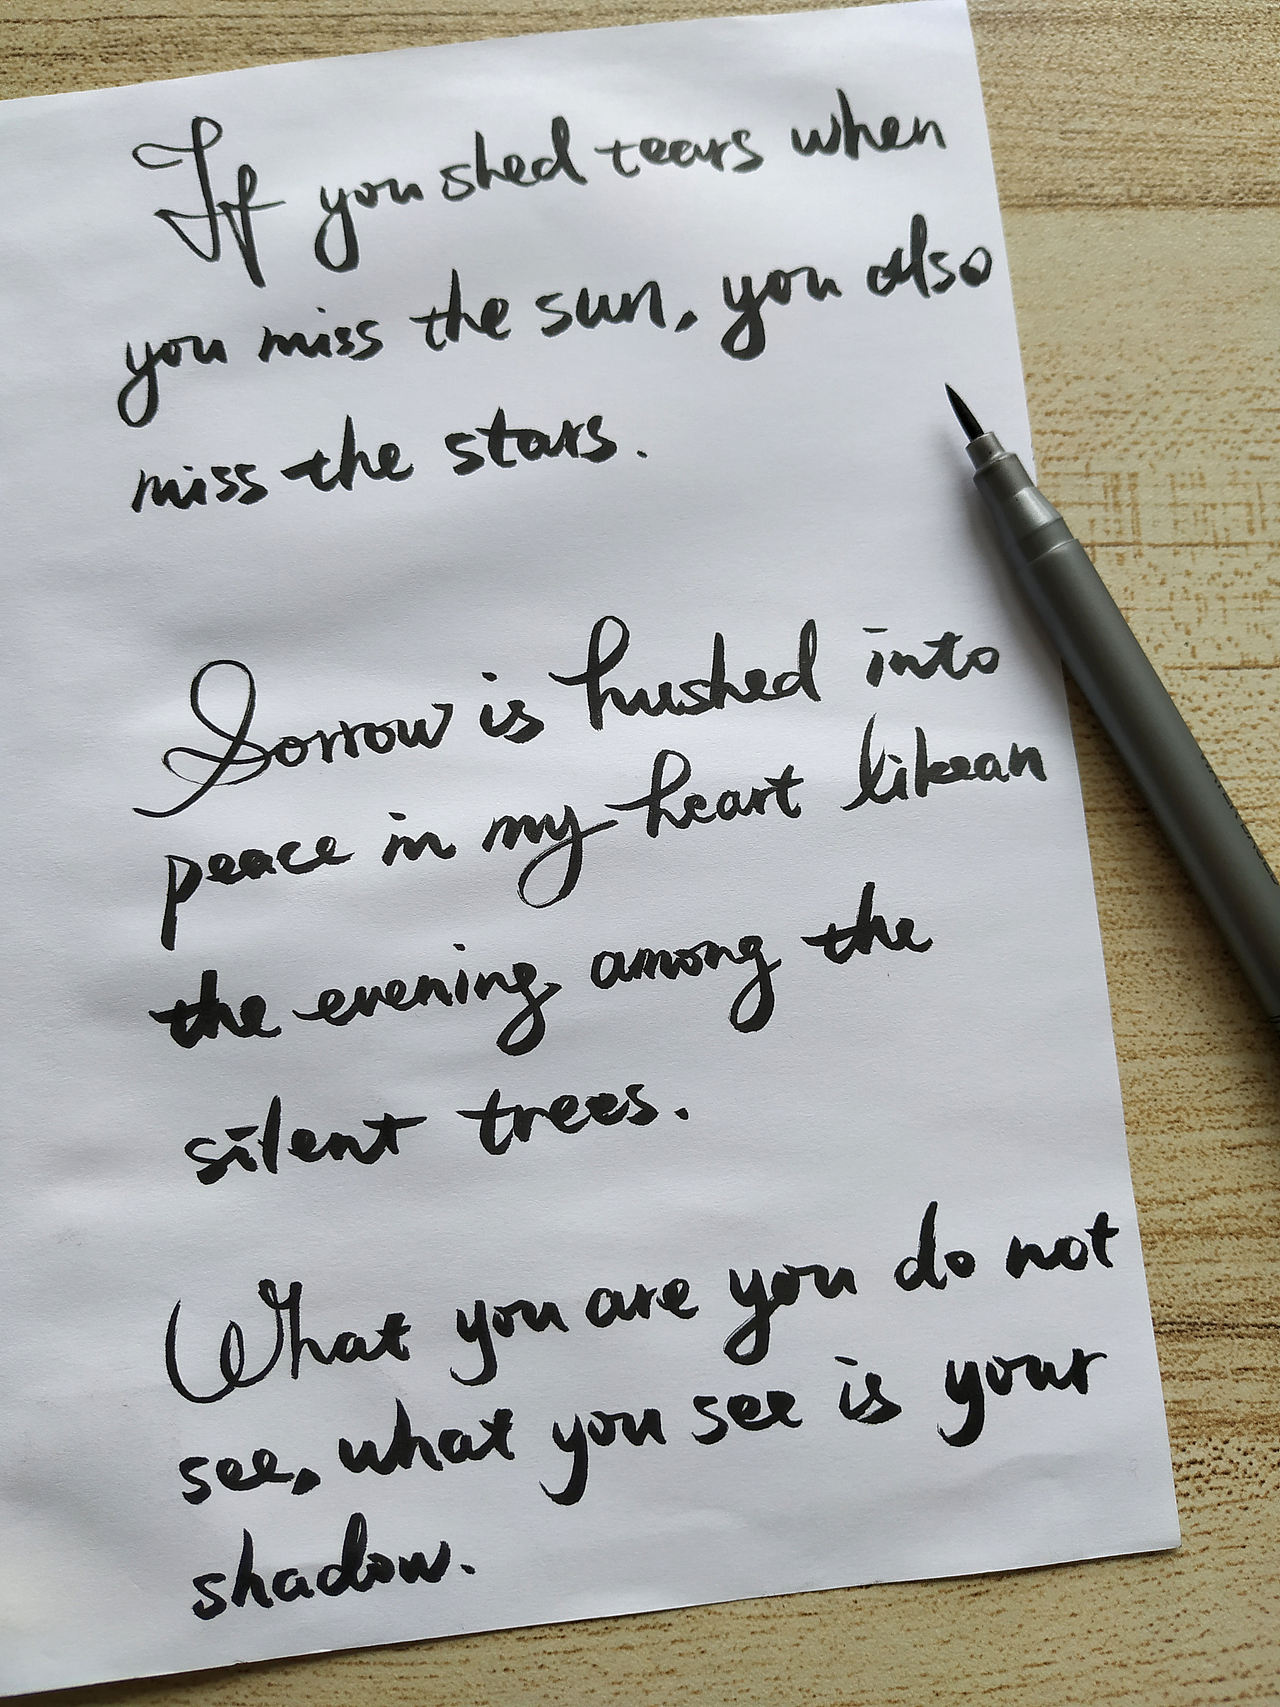 If you shed tears when
you miss the sun, you also
miss the stars.
Sorrow is hushed into
peace in my heart likean
the evening among the
silent trees.
What you are you do not
see, what you see is your
shadow.